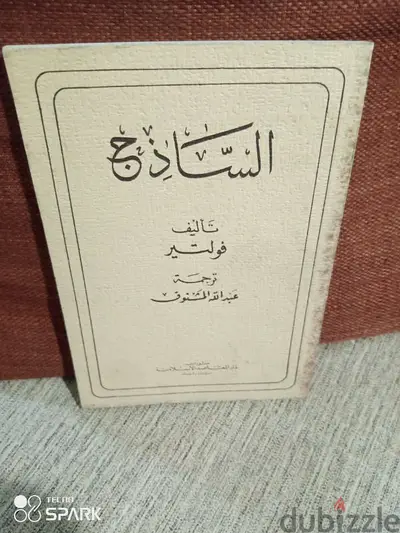 السَّاذِج
تأليف
فولتير
ترجمة
عبدالله المشنوق
TECNO
SPARK
dubizzle